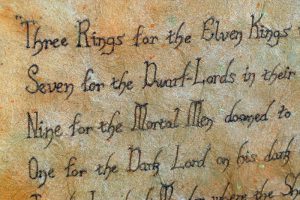 "Three Rings for the Elven Kings
Seven for the Dwarf-Lords in their
Nine for the Mortal Men doomed to
One for the Dark Lord on his dark
where the Sh